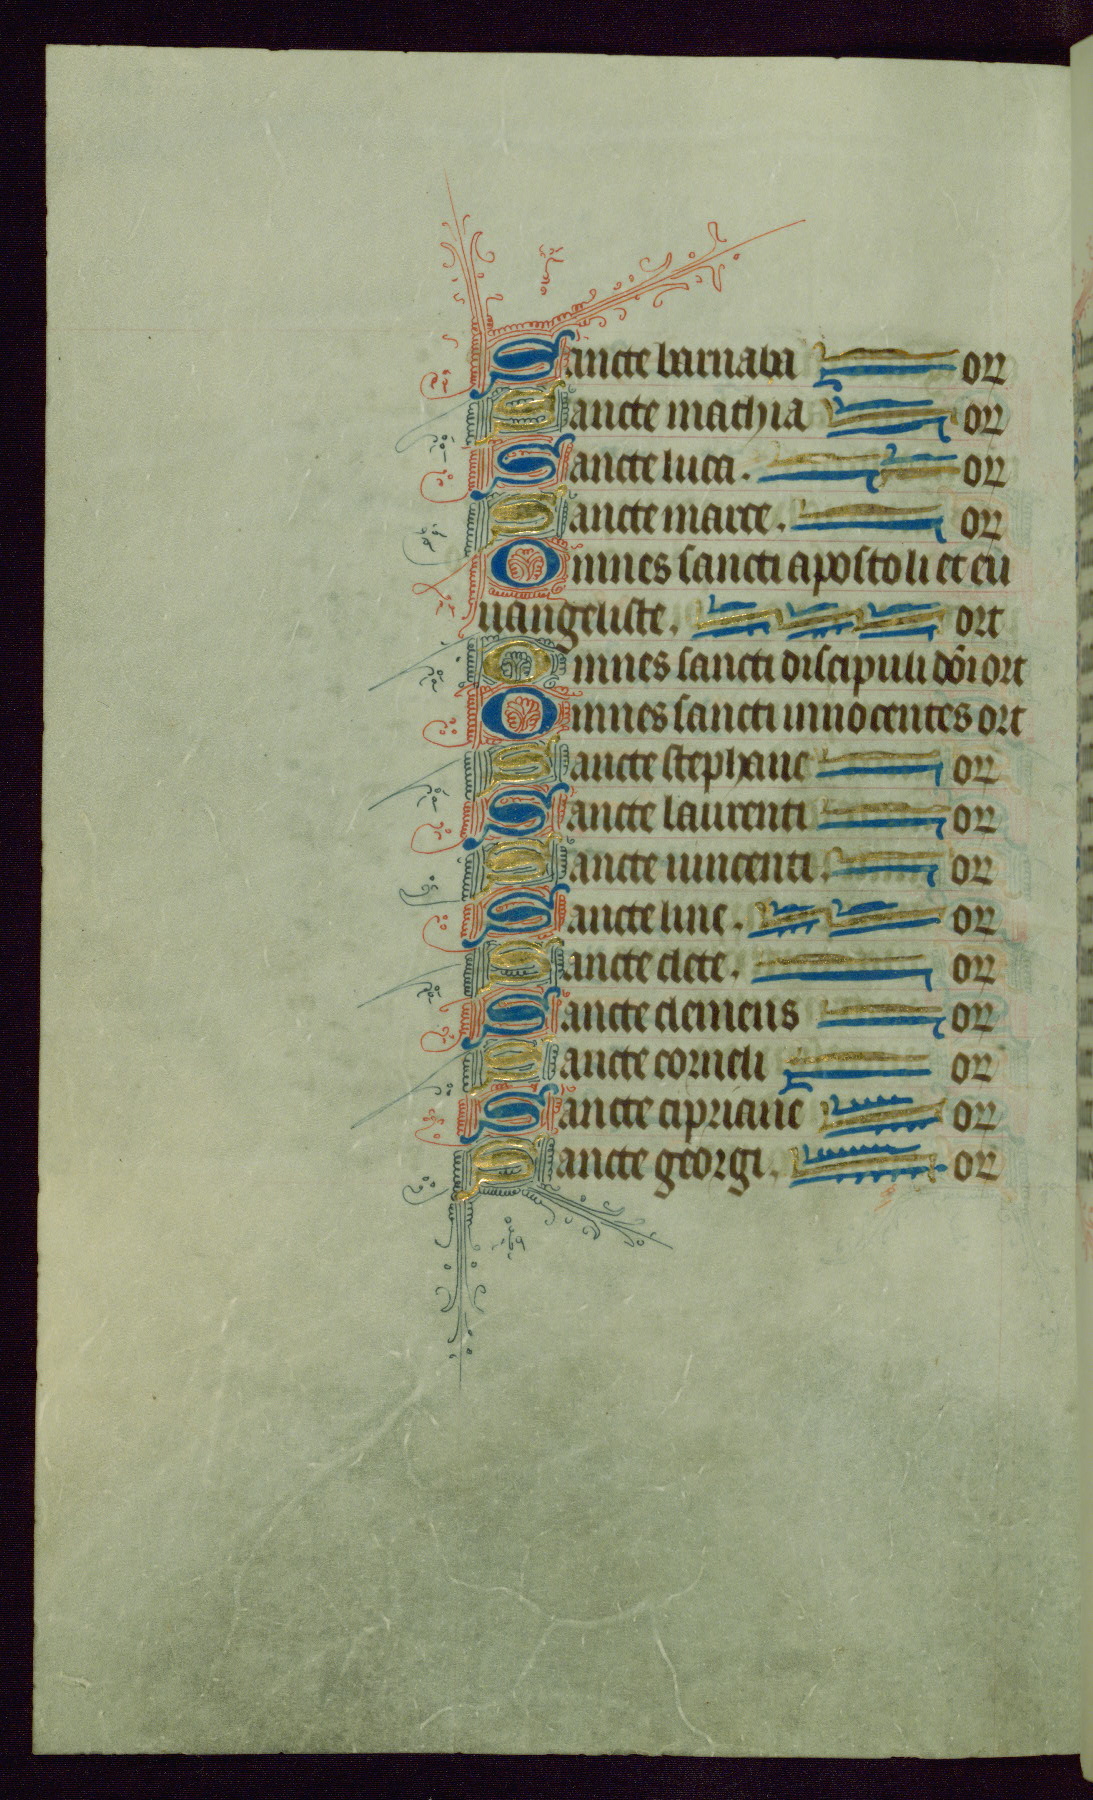 Sancte barnaba or
Sancte mathia or
Sancte luca. or
Sancte marce. or
Omnes sancti apostoli et eu
uangeliste. ort
Omnes sancti discipuli dōi ort
Omnes sancti innocentes ort
Sancte stephane or
Sancte laurenti or
Sancte uincenti. or
Sancte line. or
Sancte clete. or
Sancte clemens or
Sancte corneli or
Sancte cipriane or
Sancte georgi. or